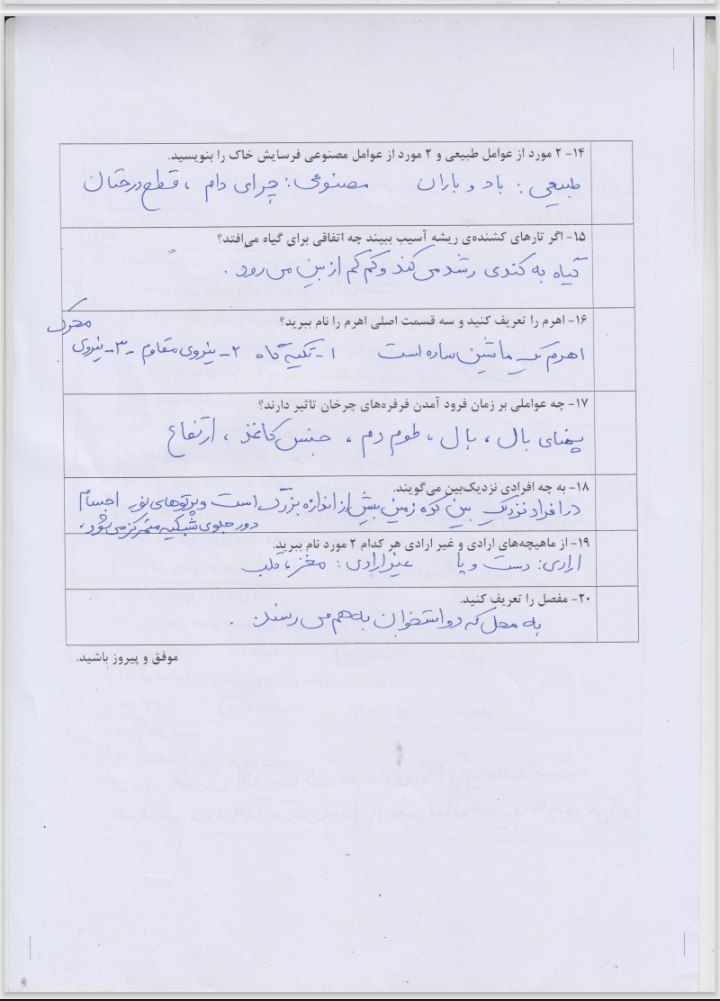 ۱۴- ۲ مورد از عوامل طبیعی و ۲ مورد از عوامل مصنوعی فرسایش خاک را بنویسید.
طبیعی: باد و باران مصنوعی: چرای دام ، قطع درختان
۱۵- اگر تارهای کشنده‌ی ریشه آسیب ببیند چه اتفاقی برای گیاه می‌افتد؟
گیاه به کندی رشد می کند و کم کم از بین می رود .
۱۶- اهرم را تعریف کنید و سه قسمت اصلی اهرم را نام ببرید؟
اهرم یک ماشین ساده است ۱- تکیه گاه ۲- نیروی مقاوم ۳- نیروی
محرک
۱۷- چه عواملی بر زمان فرود آمدن فرفره‌های چرخان تاثیر دارند؟
پهنای بال ، بال ، طوم دم ، جنس کاغذ ، ارتفاع
۱۸- به چه افرادی نزدیک‌بین می‌گویند.
در افراد نزدیک بین کره زمین بیش از اندازه بزرگ است و پرتوهای نور اجسام
دور جلوی شبکیه متمرکز می شود .
۱۹- از ماهیچه‌های ارادی و غیر ارادی هر کدام ۲ مورد نام ببرید.
ارادی: دست و پا غیر ارادی: مغز ، قلب
۲۰- مفصل را تعریف کنید.
به محل که دو استخوان به هم می رسند .
موفق و پیروز باشید.